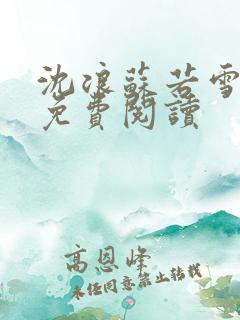 沈浪蘇若雪
免費閱讀
高恩峰
未經同意禁止轉載